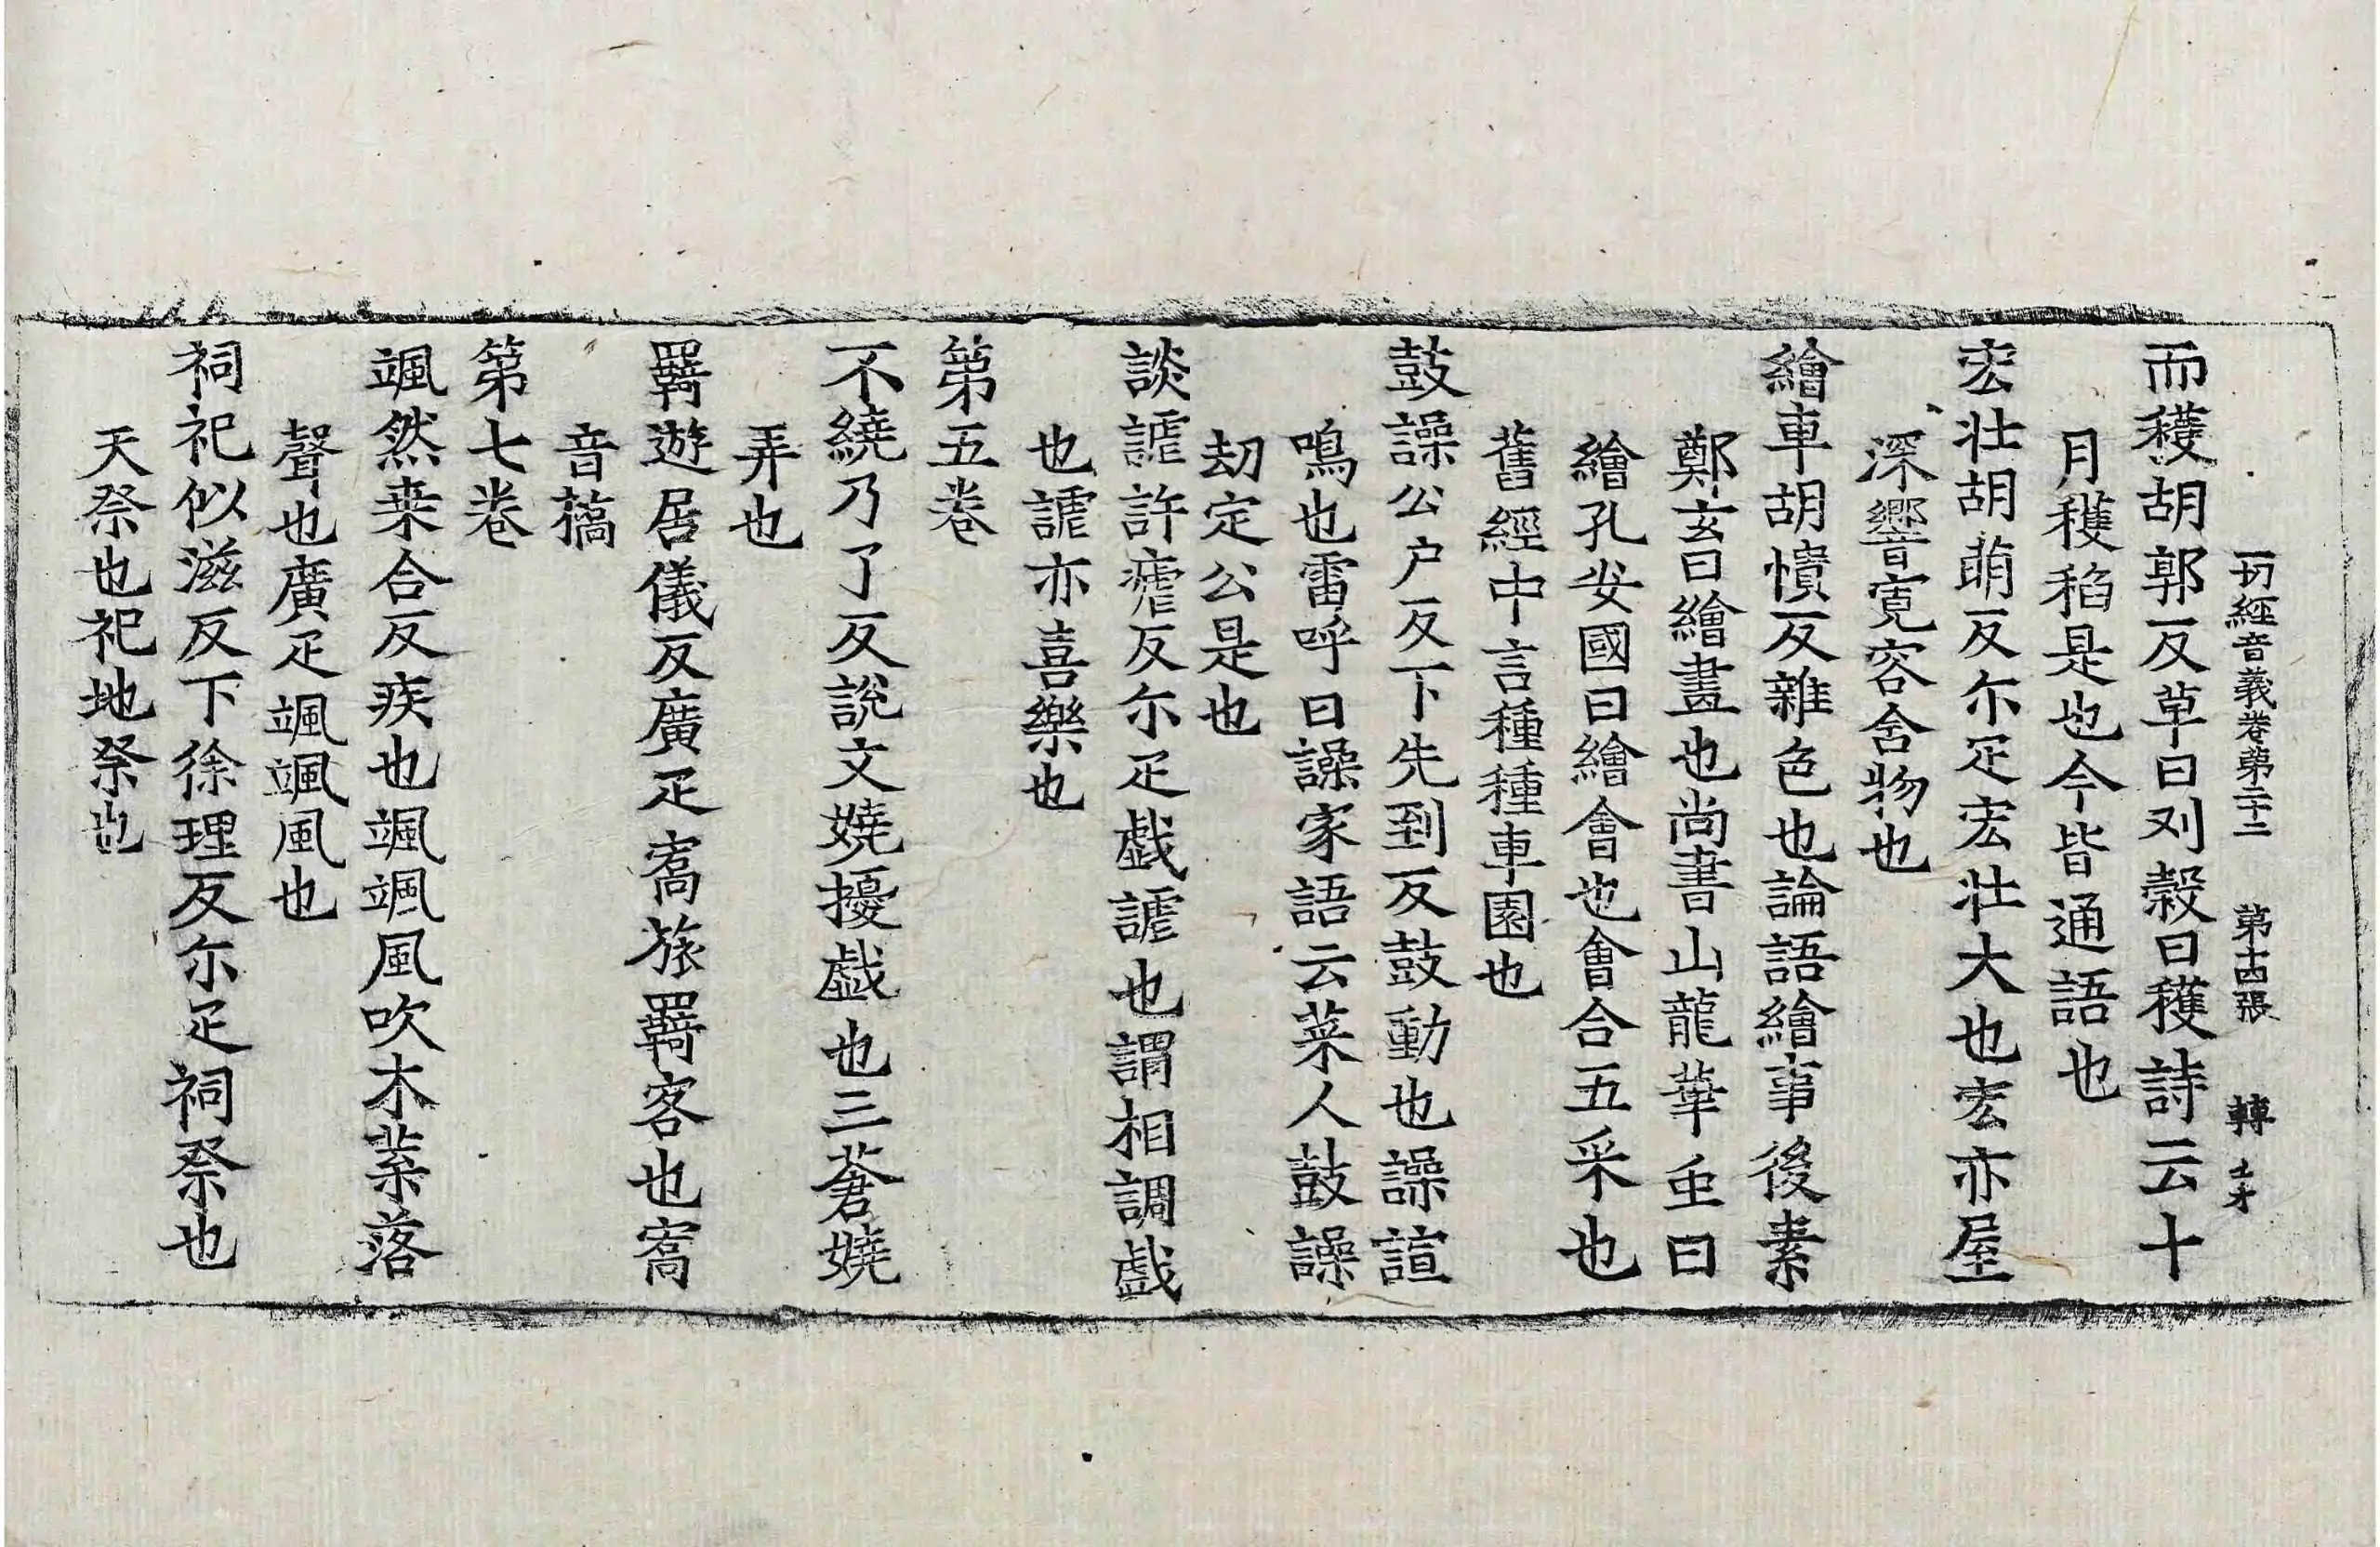 一切經音義卷第二十二 第十四張 轉
而穫胡郭反草曰刈穀曰穫詩云十
月穫稻是也今皆通語也
宏壯胡萌反尒疋宏壯大也宏亦屋
深響寬容含物也
繪車胡憒反雜色也論語繪事後素
鄭玄曰繪畫也尚書山龍華虫曰
繪孔安國曰繪會也會合五采也
舊經中言種種車園也
鼓譟公户反下先到反鼓動也譟諠
鳴也雷呼曰譟家語云萊人鼓譟
刼定公是也
談謔許瘧反尒疋戲謔也謂相調戲
也謔亦喜樂也
第五卷
不繞乃了反說文嬈擾戲也三蒼嬈
弄也
羇遊居儀反廣疋寄旅羇客也寄
音搞
第七卷
颯然桒合反疾也颯颯風吹木葉落
聲也廣疋颯颯風也
祠祀似滋反下徐理反尒疋祠祭也
天祭也祀地祭也